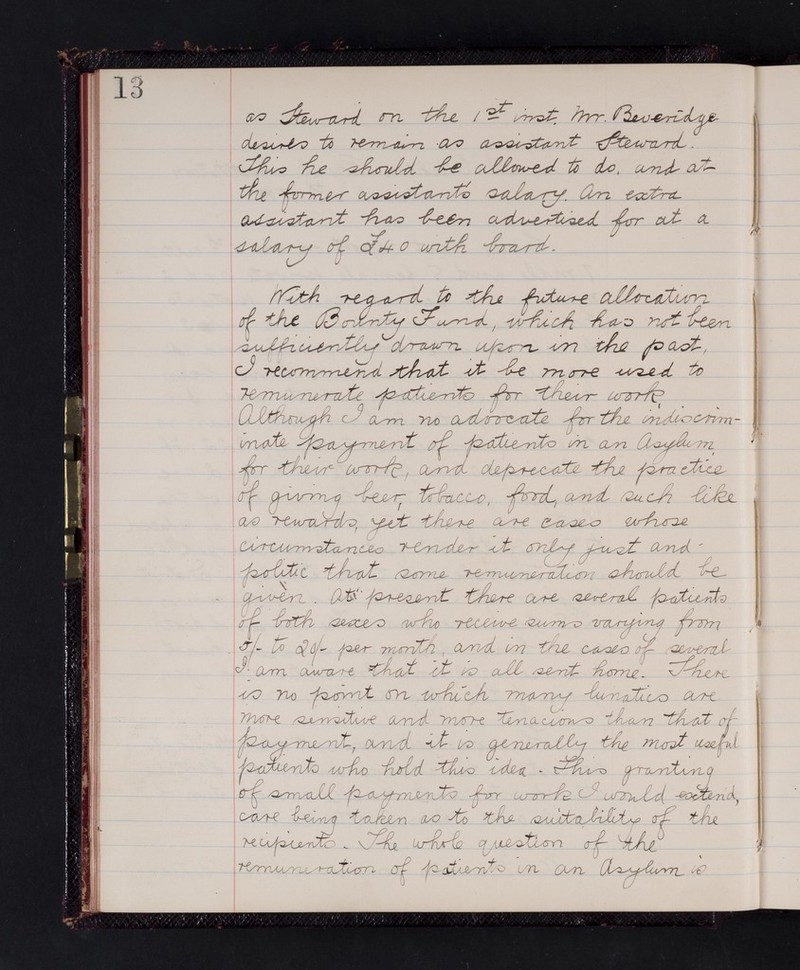 13
as Steward on the 1st inst. Mr. Beveridge
desires to remain as assistant Steward.
This he should be allowed to do, and at
the former assistant's salary. An extra
assistant has been advertised for at a
salary of £40 with board.
With regard to the future allocation
of the Bounty Fund, which has not been
sufficiently drawn upon in the past,
I recommend that it be more used to
remunerate patients for their work.
Although I am no advocate for the indiscrim-
inate payment of patients in an Asylum,
for their work, and deprecate the practice
of giving beer, tobacco, food, and such like
as rewards, yet there are cases whose
circumstances render it only just and-
politic that some remuneration should be
given. At present there are several patients
of both sexes who receive sums varying from
5/- to 20/- per month, and in the cases of several
I am aware that it is all sent home. There
is no point on which many lunatics are
more sensitive and more tenacious than that of
payment, and it is generally the most useful
patients who hold this idea. This granting
of small payments for work I would extend,
care being taken as to the suitability of the
recipients. The whole question of the
remuneration of patients in an Asylum is